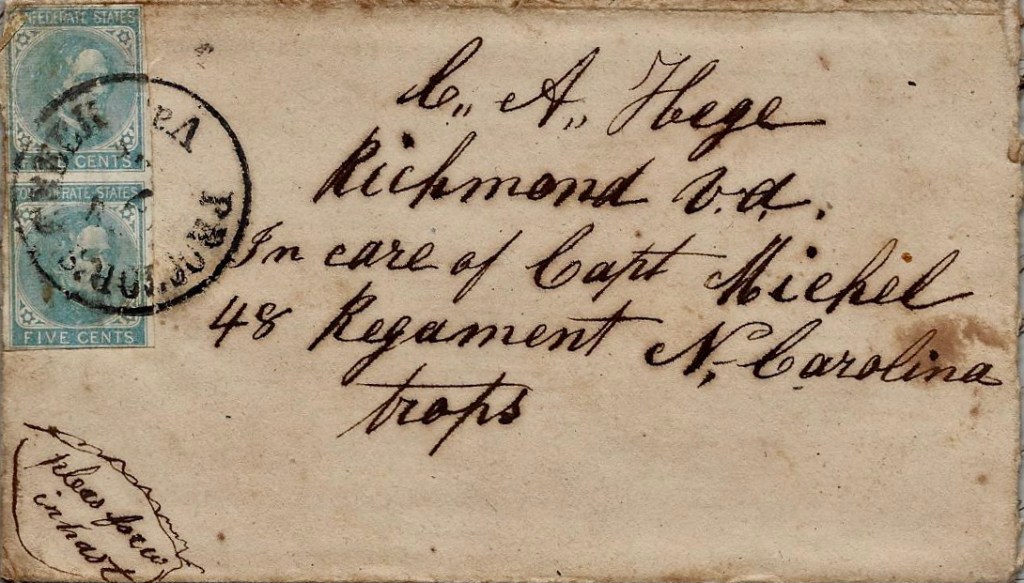 CONFEDERATE STATES
FIVE CENTS
CONFEDERATE STATES
FIVE CENTS
PROCTOR'S CREEK Va.
C,, A,, Hege
Richmond v.a.
In care of Capt Michel
48 Regament N, Carolina
trops
pleas
in hast